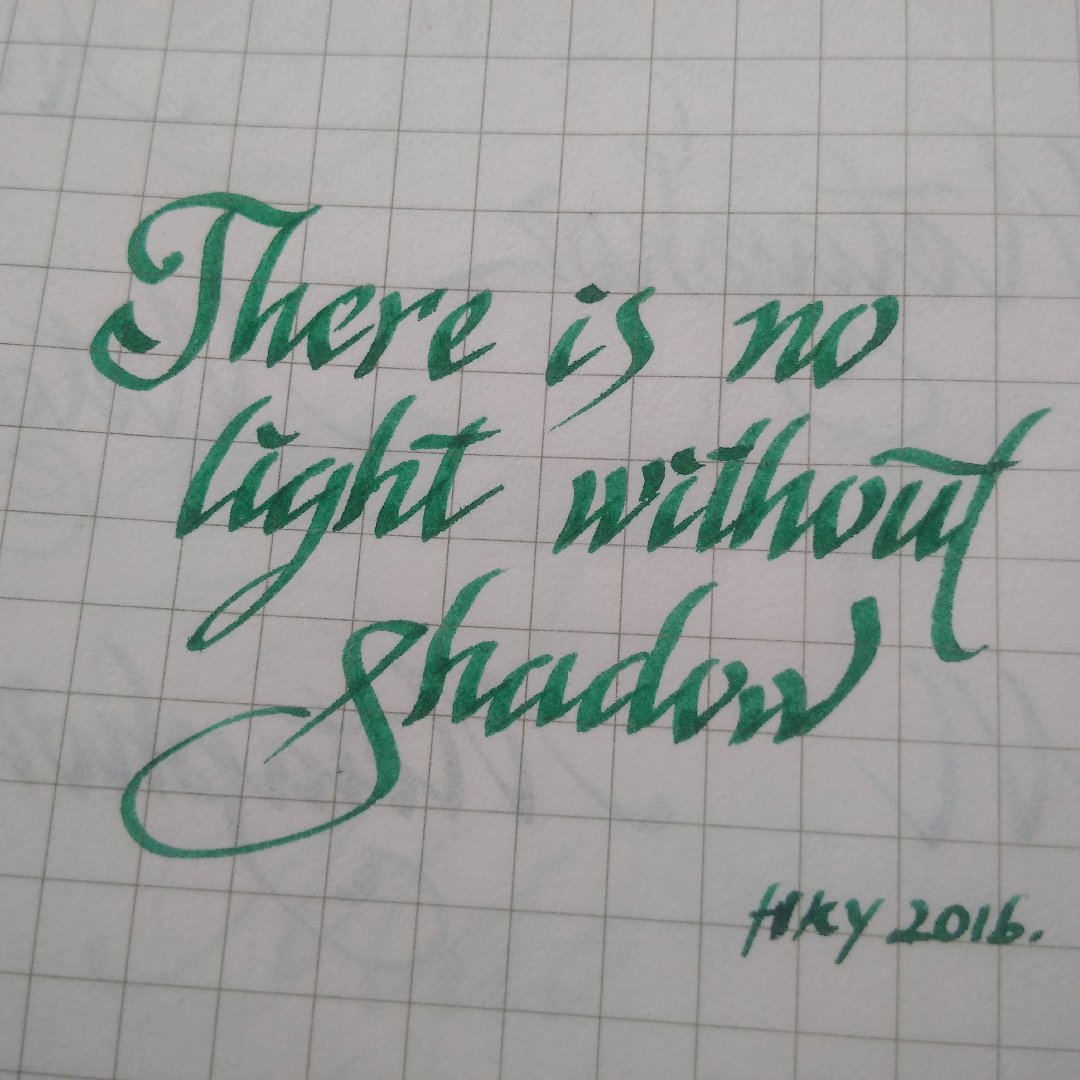 There is no
light without
Shadow
HKY 2016.